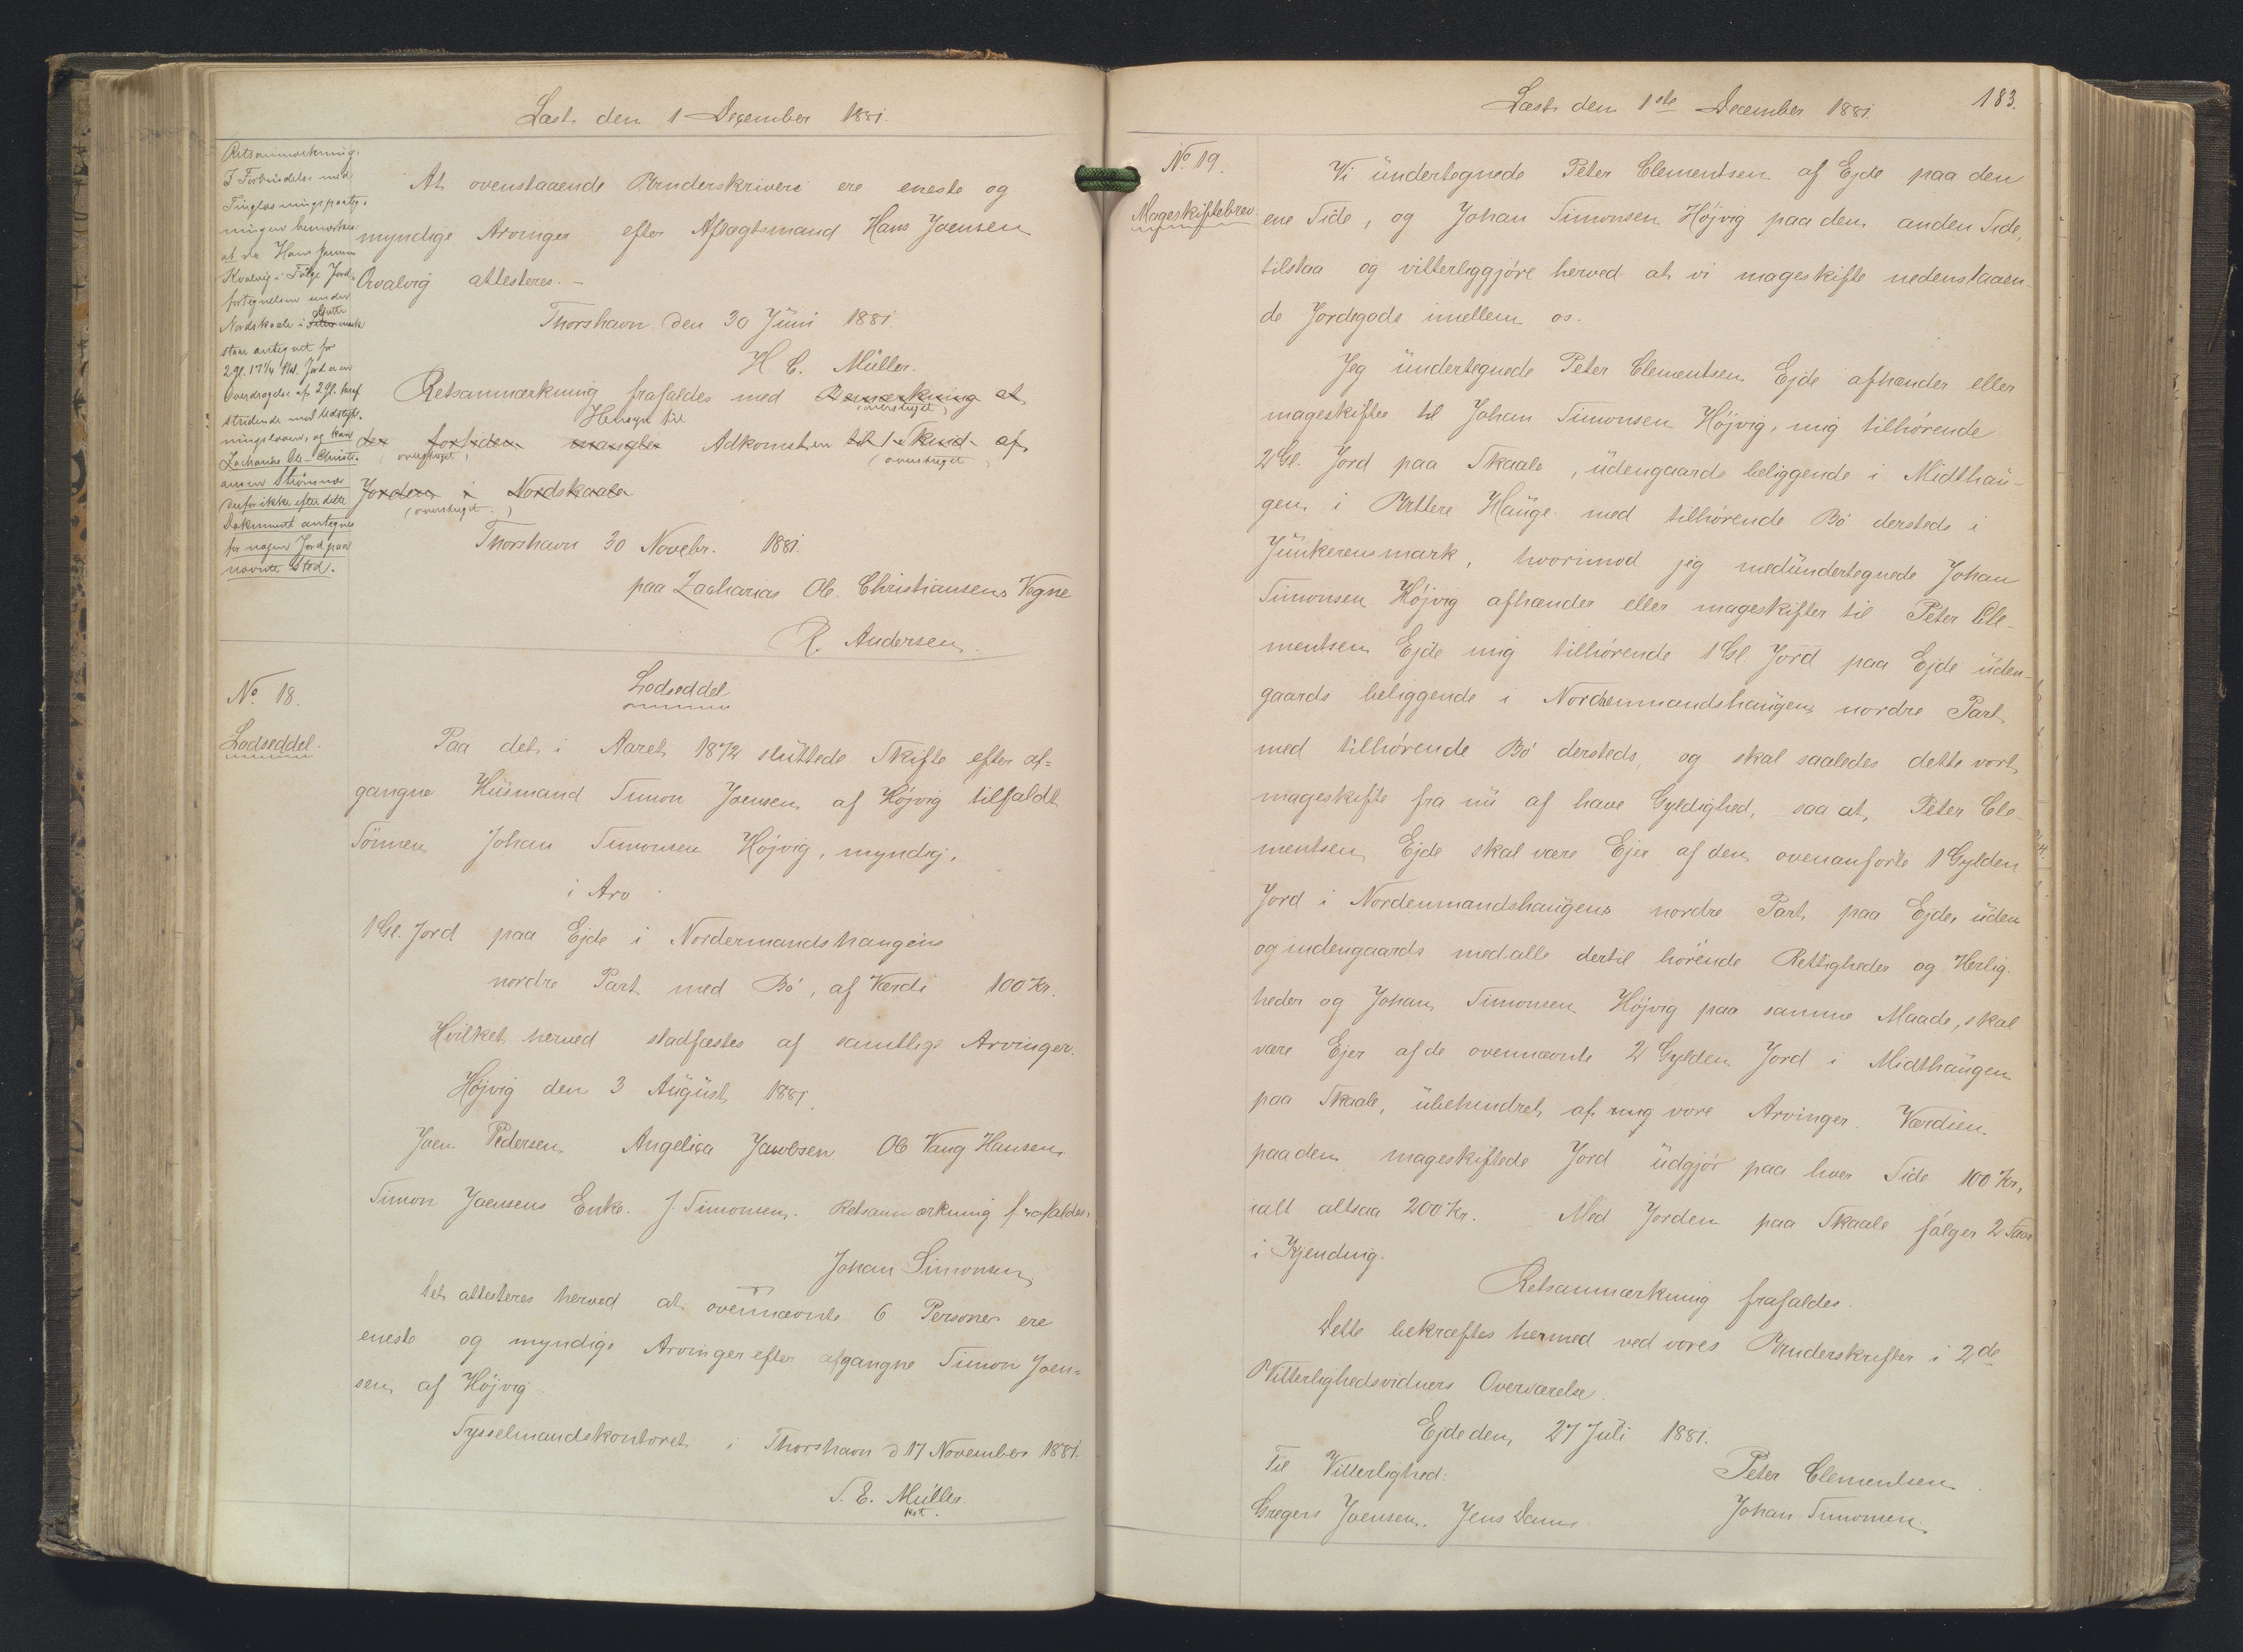 Læst den 1 December 1881.
Retsanmærkning:
I Forbindelse med
Tinglæsningspaateg-
ningen bemærkes:
at da Hans Joensen
Kvalvig i Følge Jord-
fortegnelsen under
Nordskaale i Slutte
mark
staar antegnet for
2 Gl. 17 1/4 Skd. Jord er en
Overdragelse af 2 Gl. heraf
stridende mod Udstyk-
ningsloven, og kan
Zacharias Ole Christi-
ansen Strømnæs
derfor ikke efter dette
Dokument antegnes
for nogen Jord paa
nævnte Sted.
At ovenstaaende Underskrivere ere eneste og
myndige Arvinger efter Aftægtsmand Hans Joensen
Qvalvig attesteres. -
Thorshavn den 30 Juni 1881
H. C. Müller.
Retsanmærkning frafaldes med Bemærkning at
(overstreget)
Hensyn til
den fortiden mangler Adkomsten til 1 Skind af
(overstreget) (overstreget)
Jorden i Nordskaale
(overstreget.)
Thorshavn 30 Novebr. 1881.
paa Zacharias Ole Christiansens Vegne
R. Andersen.
No 18.
Lodseddel.
Lodseddel
Paa det i Aaret 1872 sluttede Skifte efter af=
gangne Husmand Simon Joensen af Højvig tilfaldt
Sønnen Johan Simonsen Højvig, myndig,
i Arv
1 Gl. Jord paa Ejde i Nordermandshaugens
nordre Part med Bø, af Værdi 100 Kr.
Hvilket herved stadfæstes af samtlige Arvinger.
Højvig den 3 August 1881.
Joen Pedersen Angelica Jacobsen Ole Vang Hansen
Simon Joensens Enke. J. Simonsen. Retsanmærkning frafaldes.
Johan Simonsen
Det attesteres herved at ovennævnte 6 Personer ere
eneste og myndige Arvinger efter afgangne Simon Joen=
sen af Højvig
Sysselmandskontoret i Thorshavn d 17 November 1881.
S. E. Müller.
kst.
Læst den 1ste December 1881.
183.
No 19.
Mageskiftebrev.
Vi undertegnede Peter Clementsen af Ejde paa den
ene Side, og Johan Simonsen Højvig paa den anden Side,
tilstaa og vitterliggjøre herved at vi mageskifte nedenstaaen-
de Jordegods imellem os.
Jeg undertegnede Peter Clementsen Ejde afhænder eller
mageskifter til Johan Simonsen Højvig, mig tilhørende
2 Gl. Jord paa Skaale, udengaards beliggende i Midthau-
gen i Yttere Hauge med tilhørende Bø dersteds i
Junkerensmark, hvorimod jeg medundertegnede Johan
Simonsen Højvig afhænder eller mageskifter til Peter Cle-
mentsen Ejde mig tilhørende 1 Gl Jord paa Ejde uden-
gaards beliggende i Nordenmandshaugens nordre Part
med tilhørende Bø dersteds, og skal saaledes dette vort
mageskifte fra nu af have Gyldighed, saa at, Peter Cle-
mentsen Ejde skal være Ejer af den ovenanførte 1 Gylden
Jord i Nordenmandshaugens nordre Part paa Ejde, uden
og indengaards med alle dertil hørende Rettigheder og Herlig-
heder og Johan Simonsen Højvig paa samme Maade, skal
være Ejer af de ovennævnte 2 Gylden Jord i Midthaugen
paa Skaale, ubehindret af mig vore Arvinger. Værdien
paa den mageskiftede Jord udgjør paa hver Side 100 Kr,
ialt altsaa 200 Kr. Med Jorden paa Skaale følger 2 Faar
i Kjending.
Retsanmærkning frafaldes.
Dette bekræftes hermed ved vores Underskrifter i 2de
Vitterlighedsvidners Overværelse.
Ejde den 27 Juli 1881.
Til Vitterlighed: Peter Clementsen
Gregers Joensen. Jens Dam Johan Simonsen.